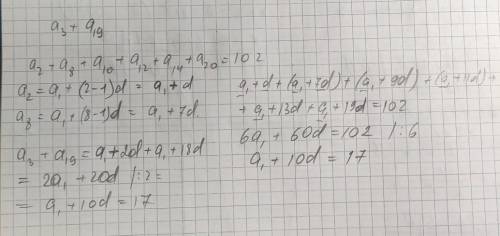 a₃ + a₁₉
a₂ + a₈ + a₁₀ + a₁₂ + a₁₄ + a₂₀ = 102
a₂ = a₁ + (2-1)d = a₁ + d
a₈ = a₁ + (8-1)d = a₁ + 7d
a₃ + a₁₉ = a₁ + 2d + a₁ + 18d
= 2a₁ + 20d /:2 =
= a₁ + 10d = 17
a₁ + d + (a₁ + 7d) + (a₁ + 9d) + (a₁ + 11d) +
+ a₁ + 13d + a₁ + 19d = 102
6a₁ + 60d = 102 /:6
a₁ + 10d = 17